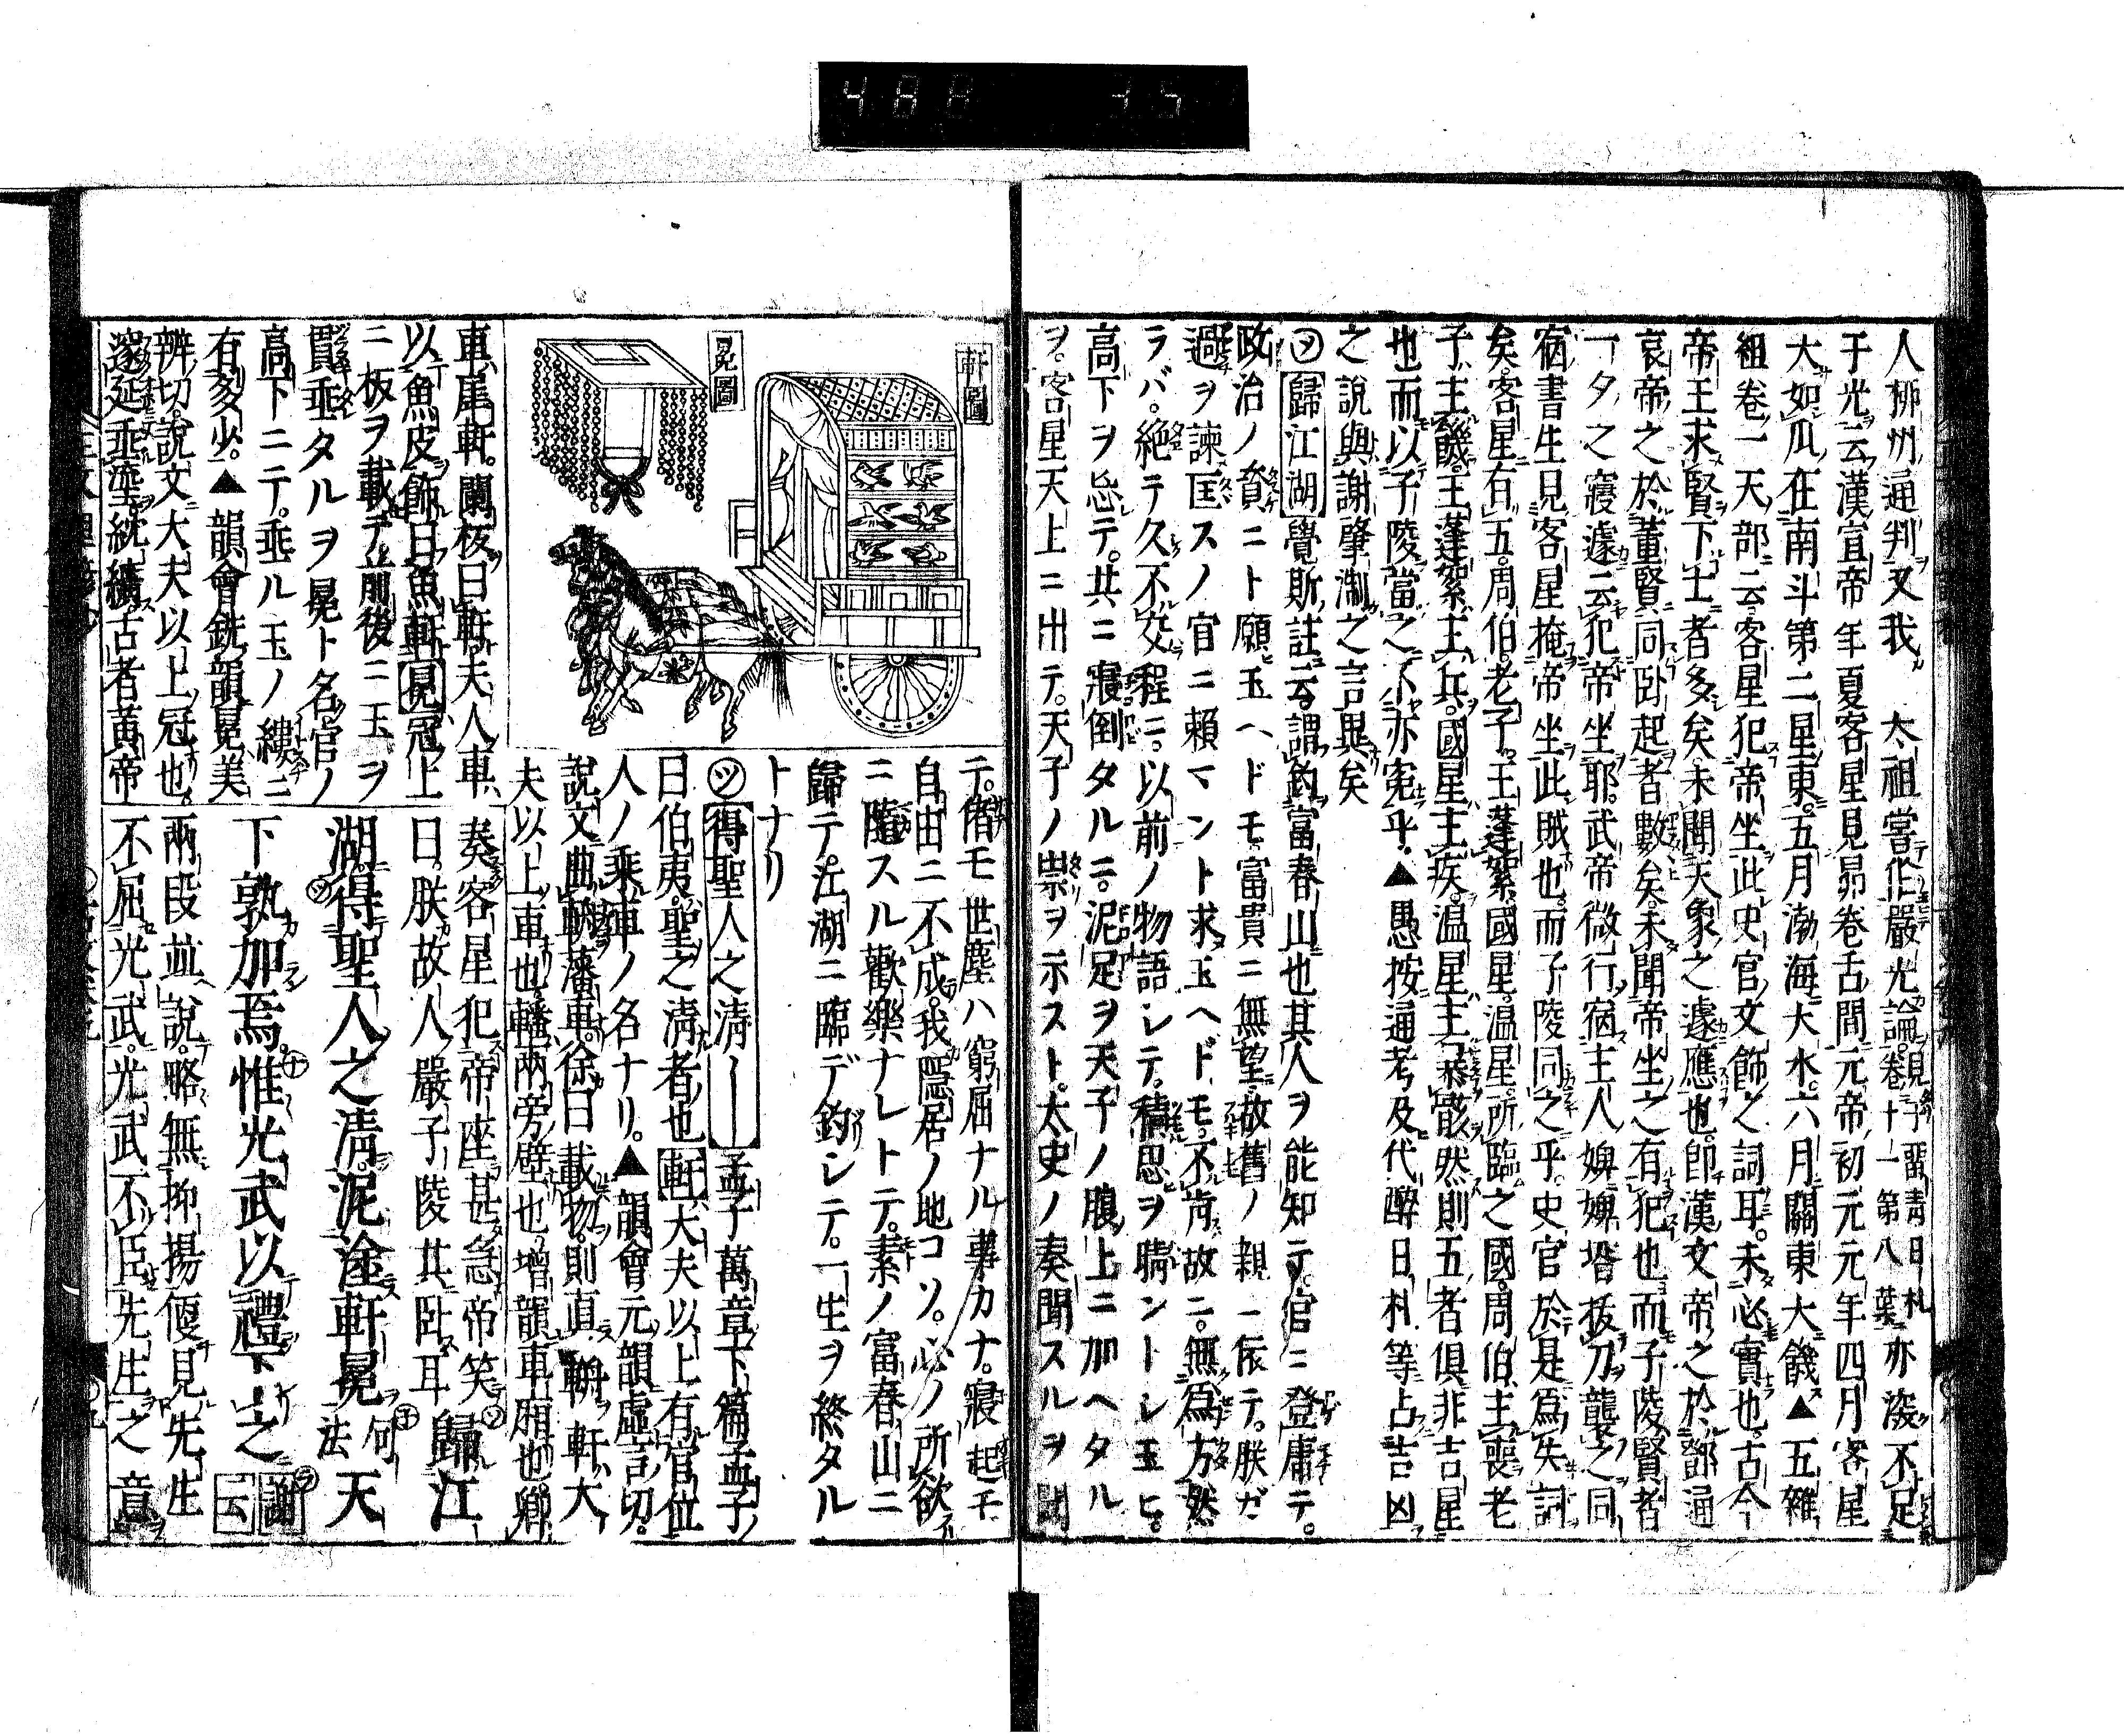 人柳州通判又我　太祖嘗作嚴光論見于留青日札卷十一第八葉亦深不足
于光云漢宣帝年夏客星見昴卷舌間元帝初元元年四月客星
大如瓜在南斗第二星東五月渤海大水六月關東大饑▲五雜
組卷一天部云客星犯帝坐此史官文飾之詞耳未必實也古今
帝王求賢下士者多矣未聞天象之遽應也即漢文帝之於鄧通
哀帝之於董賢同卧起者數矣未聞帝坐之有犯也而子陵賢者
一夕之寢遽云犯帝坐耶武帝微行宿主人婢婢壻拔刀襲之同
宿書生見客星掩帝坐此賊也而子陵同之乎史官於是爲失詞
矣客星有五周伯老子王蓬絮國星温星所臨之國周伯主喪老
子主饑王蓬絮主兵國星主疾温星主暴骸然則五者俱非吉星
也而以子陵當之不亦寃乎▲愚按通考及代醉日札等占吉凶
之說與謝肇淛之言異矣
ヲ歸江湖覺斯註云謂釣富春山也其人ヲ能知テ官ニ登庸テ
政治ノ資ニト願玉ヘドモ富貴ニ無望故舊ノ親ニ依テ朕ガ
過ヲ諫匡スノ官ニ頼マント求玉ヘドモ不肯故ニ無爲方然
ラバ絶テ久不交程ニ以前ノ物語シテ積思ヲ晴ントシ玉ヒ
高下ヲ忘テ共ニ寢倒タルニ泥足ヲ天子ノ腹上ニ加ヘタル
ヲ客星天上ニ出テ天子ノ祟ヲ示スト太史ノ奏聞スルヲ聞
軒圖
冕圖
テ偖モ世塵ハ窮屈ナル事カナ寢起モ
自由ニ不成我隱居ノ地コソ心ノ所欲
ニ隨スル歡樂ナレトテ素ノ富春山ニ
歸テ江湖ニ臨デ釣シテ一生ヲ終タル
トナリ
ツ得聖人之淸｜孟子萬章下篇孟子
曰伯夷聖之淸者也軒大夫以上有官位
人ノ乘車ノ名ナリ▲韻會元韻虛言切
說文曲輈藩車徐曰載物則直輈軒大
夫以上車也轓兩旁壁也增韻車廂也卿
車尾軒闌板曰軒夫人車
以魚皮飾曰魚軒冕冠上
ニ板ヲ載テ前後ニ玉ヲ
貫垂タルヲ冕ト名官ノ
高下ニテ垂ル玉ノ縷ニ
有多少▲韻會銑韻冕美
辨切說文大夫以上冠也
邃延垂瑬紞纊古者黄帝
奏客星犯帝座甚急帝笑
曰朕故人嚴子陵其卧耳歸江
湖得聖人之淸泥塗軒冕何法天
下孰加焉惟光武以禮下之謝云
兩段並說略無抑揚便見先生
不屈光武光武不臣先生之意